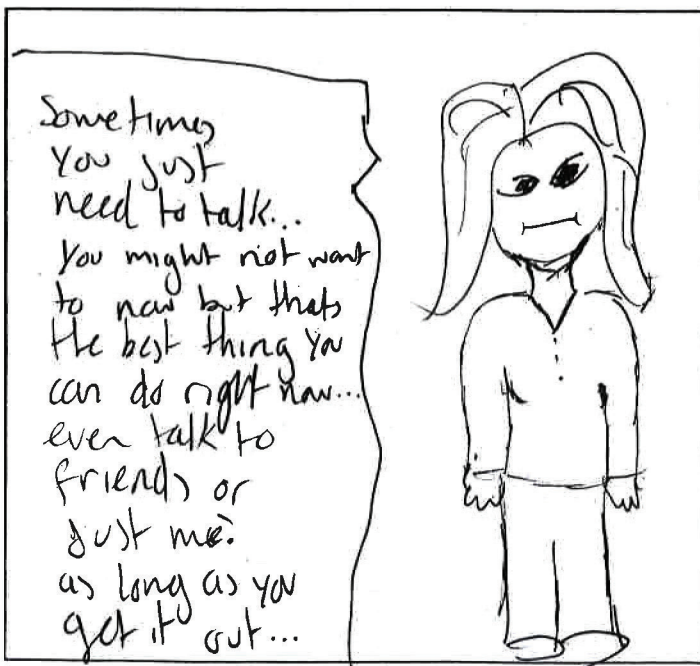 Sometimes
you just
need to talk...
You might not want
to now but thats
the best thing you
can do right now...
even talk to
friends or
just me?
as long as you
get it out...